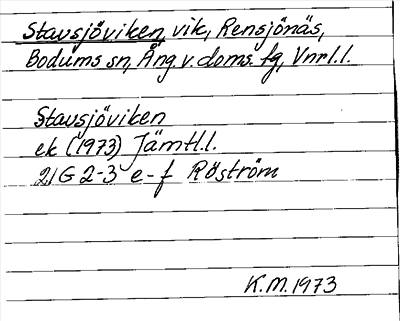 Stavsjöviken, vik, Rensjönäs,
Bodums sn, Ång. v. doms. fg, Vnrl. l.
Stavsjöviken
ek (1973) Jämtl. l.
21G 2-3 e-f Röström
K.M. 1973